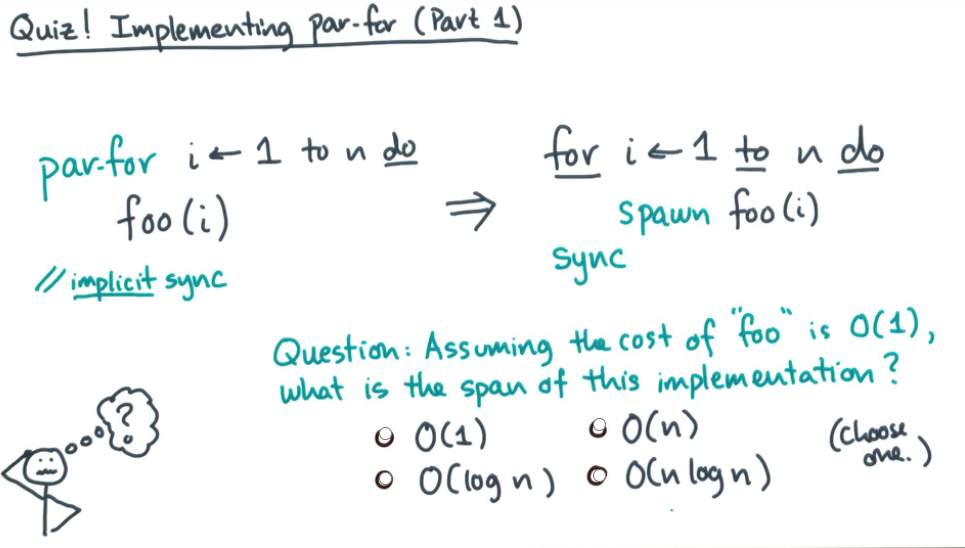 Quiz! Implementing par-for (Part 1)
par-for i ← 1 to n do
foo(i)
// implicit sync
⇒
for i ← 1 to n do
spawn foo(i)
sync
Question: Assuming the cost of "foo" is O(1),
what is the span of this implementation?
O(1) O(n)
O(log n) O(n log n)
(choose
one.)
?